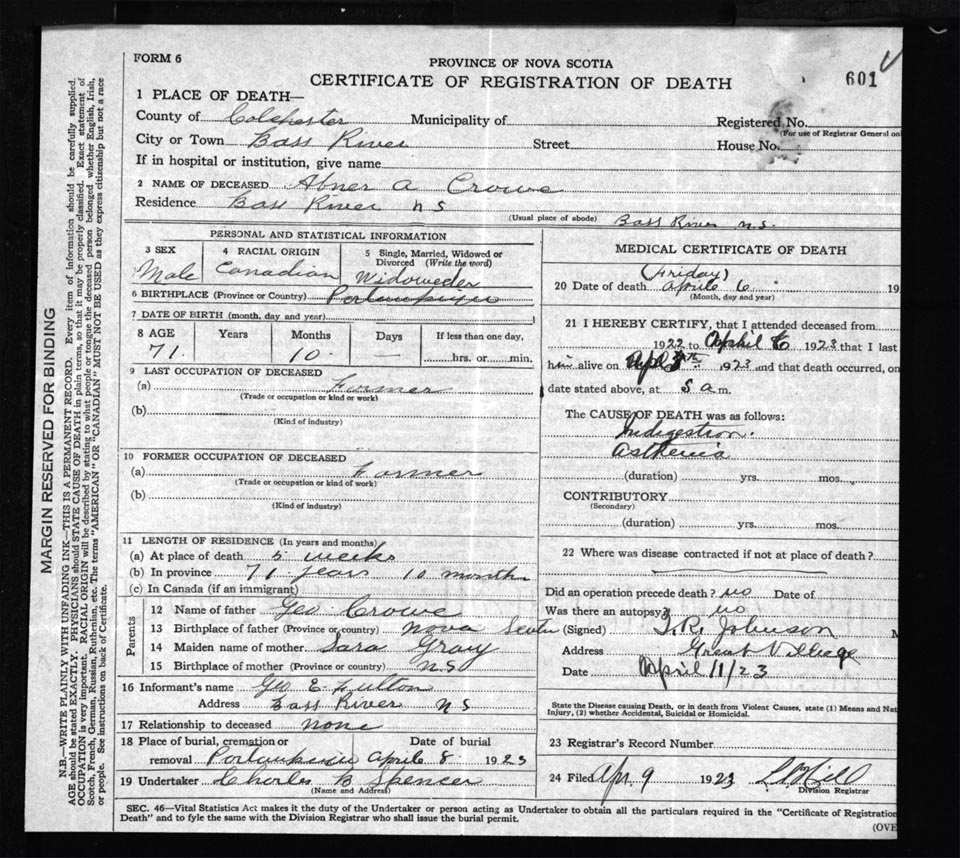 FORM 6
PROVINCE OF NOVA SCOTIA
CERTIFICATE OF REGISTRATION OF DEATH
601
1 PLACE OF DEATH—
County of Colchester Municipality of Registered No.
(For use of Registrar General on
City or Town Bass River Street House No.
If in hospital or institution, give name
2 NAME OF DECEASED Abner A Crowe
Residence Bass River N S
(Usual place of abode) Bass River N.S.
PERSONAL AND STATISTICAL INFORMATION
3 SEX 4 RACIAL ORIGIN 5 Single, Married, Widowed or Divorced (Write the word)
Male Canadian Widoweder
6 BIRTHPLACE (Province or Country)
7 DATE OF BIRTH (month, day and year)
8 AGE Years Months Days If less than one day,
71 10 — hrs. or min.
9 LAST OCCUPATION OF DECEASED
(a) Farmer
(Trade or occupation or kind or work)
(b)
(Kind of industry)
10 FORMER OCCUPATION OF DECEASED
(a) Farmer
(Trade or occupation or kind of work)
(b)
(Kind of industry)
11 LENGTH OF RESIDENCE (In years and months)
(a) At place of death 5 weeks
(b) In province 71 years 10 months
(c) In Canada (if an immigrant)
Parents
12 Name of father Geo Crowe
13 Birthplace of father (Province or country) Nova Scotia
14 Maiden name of mother Sara Gray
15 Birthplace of mother (Province or country) N S
16 Informant's name Geo E Fulton
Address Bass River N S
17 Relationship to deceased none
18 Place of burial, cremation or removal Date of burial
April 8 1923
19 Undertaker Charles B Spencer
(Name and Address)
MEDICAL CERTIFICATE OF DEATH
(Friday)
20 Date of death April 6 19
(Month, day and year)
21 I HEREBY CERTIFY, that I attended deceased from
1922 to April 6 1923 that I last
him alive on 1923 and that death occurred, on
date stated above, at 5 a m.
The CAUSE OF DEATH was as follows:
Indigestion.
Asthenia
(duration) yrs. mos.
CONTRIBUTORY
(Secondary)
(duration) yrs. mos.
22 Where was disease contracted if not at place of death?
Did an operation precede death? no Date of
Was there an autopsy? no
(Signed) T. R. Johnson M
Address Great Village
Date April 11/23
State the Disease causing Death, or in death from Violent Causes, state (1) Means and Nat
Injury, (2) whether Accidental, Suicidal or Homicidal.
23 Registrar's Record Number
24 Filed Apr. 9 1923 Hill
Division Registrar
SEC. 46—Vital Statistics Act makes it the duty of the Undertaker or person acting as Undertaker to obtain all the particulars required in the "Certificate of Registration
Death" and to fyle the same with the Division Registrar who shall issue the burial permit.
(OVE
MARGIN RESERVED FOR BINDING
N.B.—WRITE PLAINLY WITH UNFADING INK—THIS IS A PERMANENT RECORD. Every item of information should be carefully supplied.
AGE should be stated EXACTLY. PHYSICIANS should STATE CAUSE OF DEATH in plain terms, so that it may be properly classified. Exact statement of
OCCUPATION is very important. RACIAL ORIGIN will be described by stating to what people or tongue the deceased person belonged whether English, Irish,
Scotch, French, German, Russian, Ruthenian, etc. The terms "AMERICAN" OR "CANADIAN" MUST NOT BE USED as they express citizenship but not a race
or people. See instructions on back of Certificate.